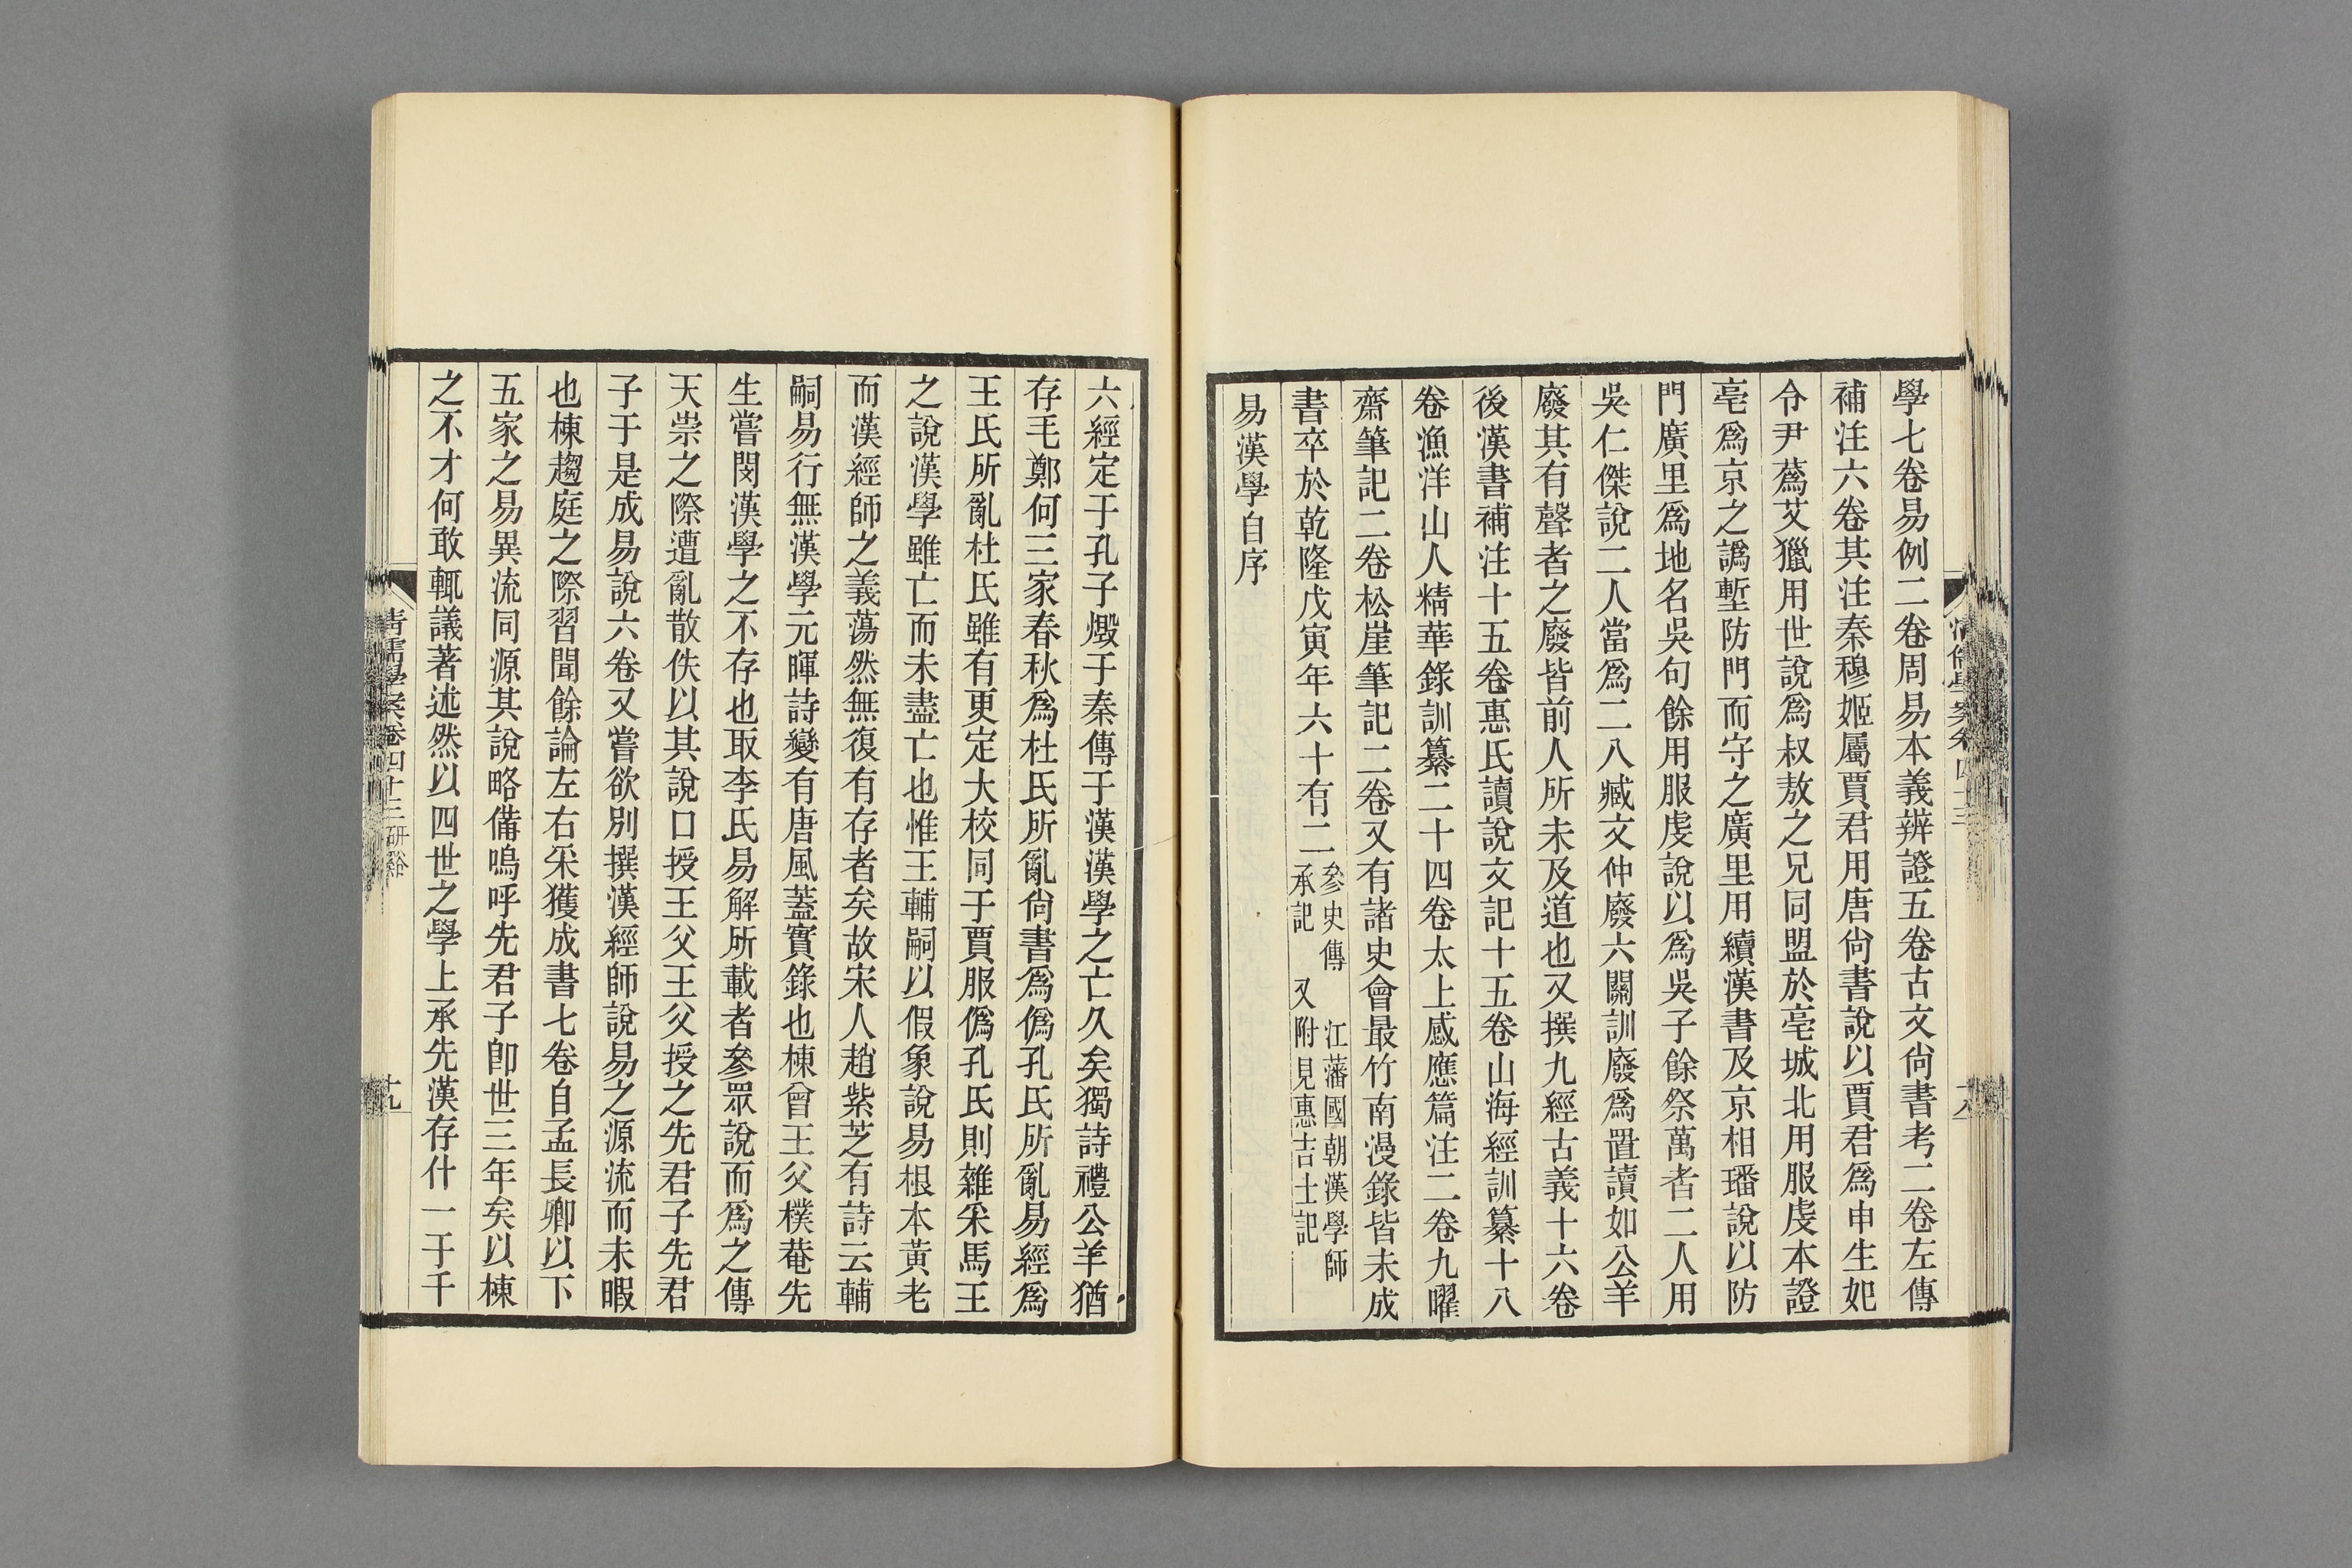 學七卷易例二卷周易本義辨證五卷古文尙書考二卷左傳
補注六卷其注秦穆姬屬賈君用唐尙書說以賈君爲申生妃
令尹蔿艾獵用世說爲叔敖之兄同盟於亳城北用服虔本證
亳爲京之譌塹防門而守之廣里用續漢書及京相璠說以防
門廣里爲地名吳句餘用服虔說以爲吳子餘祭萬者二人用
吳仁傑說二人當爲二八臧文仲廢六關訓廢爲置讀如公羊
廢其有聲者之廢皆前人所未及道也又撰九經古義十六卷
後漢書補注十五卷惠氏讀說文記十五卷山海經訓纂十八
卷漁洋山人精華錄訓纂二十四卷太上感應篇注二卷九曜
齋筆記二卷松崖筆記二卷又有諸史會最竹南漫錄皆未成
書卒於乾隆戊寅年六十有二參史傳 江藩國朝漢學師
承記 又附見惠吉士記
易漢學自序
六經定于孔子燬于秦傳于漢漢學之亡久矣獨詩禮公羊猶
存毛鄭何三家春秋爲杜氏所亂尙書爲僞孔氏所亂易經爲
王氏所亂杜氏雖有更定大校同于賈服僞孔氏則雜釆馬王
之說漢學雖亡而未盡亡也惟王輔嗣以假象說易根本黃老
而漢經師之義蕩然無復有存者矣故宋人趙紫芝有詩云輔
嗣易行無漢學元暉詩變有唐風蓋實錄也棟曾王父樸菴先
生嘗閔漢學之不存也取李氏易解所載者參眾說而爲之傳
天崇之際遭亂散佚以其說口授王父王父授之先君子先君
子于是成易說六卷又嘗欲別撰漢經師說易之源流而未暇
也棟趨庭之際習聞餘論左右釆獲成書七卷自孟長卿以下
五家之易異流同源其說略備嗚呼先君子卽世三年矣以棟
之不才何敢輒議著述然以四世之學上承先漢存什一于千
清儒學案卷四十三 研谿
十九